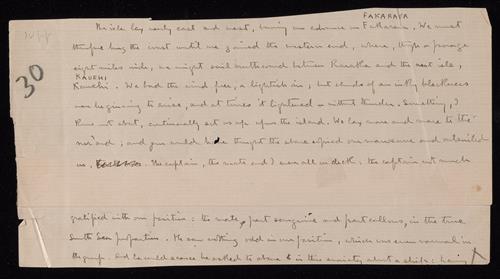 30
FAKARAVA
The isle lay nearly east and west, barring our advance on Fakarava. We must
therefore hug the coast until we gained the western end, where, through a passage
eight miles wide, we might sail southward between Raraka and the next isle,
KAUEHI
Kauehi. We had the wind free, a lightish air; but clouds of an inky blackness
were beginning to arise, and at times it lightened without thunder. Something, I
know not what, continually set us up upon the island. We lay more and more to the
nor'ard; and you would have thought the shore copied our manœuvre and outsailed
us. The captain, the mate and I were all on deck; the captain not much
gratified with our position: the mate, part sanguine and part callous, in the true
South Sea
He saw nothing odd in our position, which was even normal in
the group. And he could scarce be asked to share in this anxiety about a ship: having